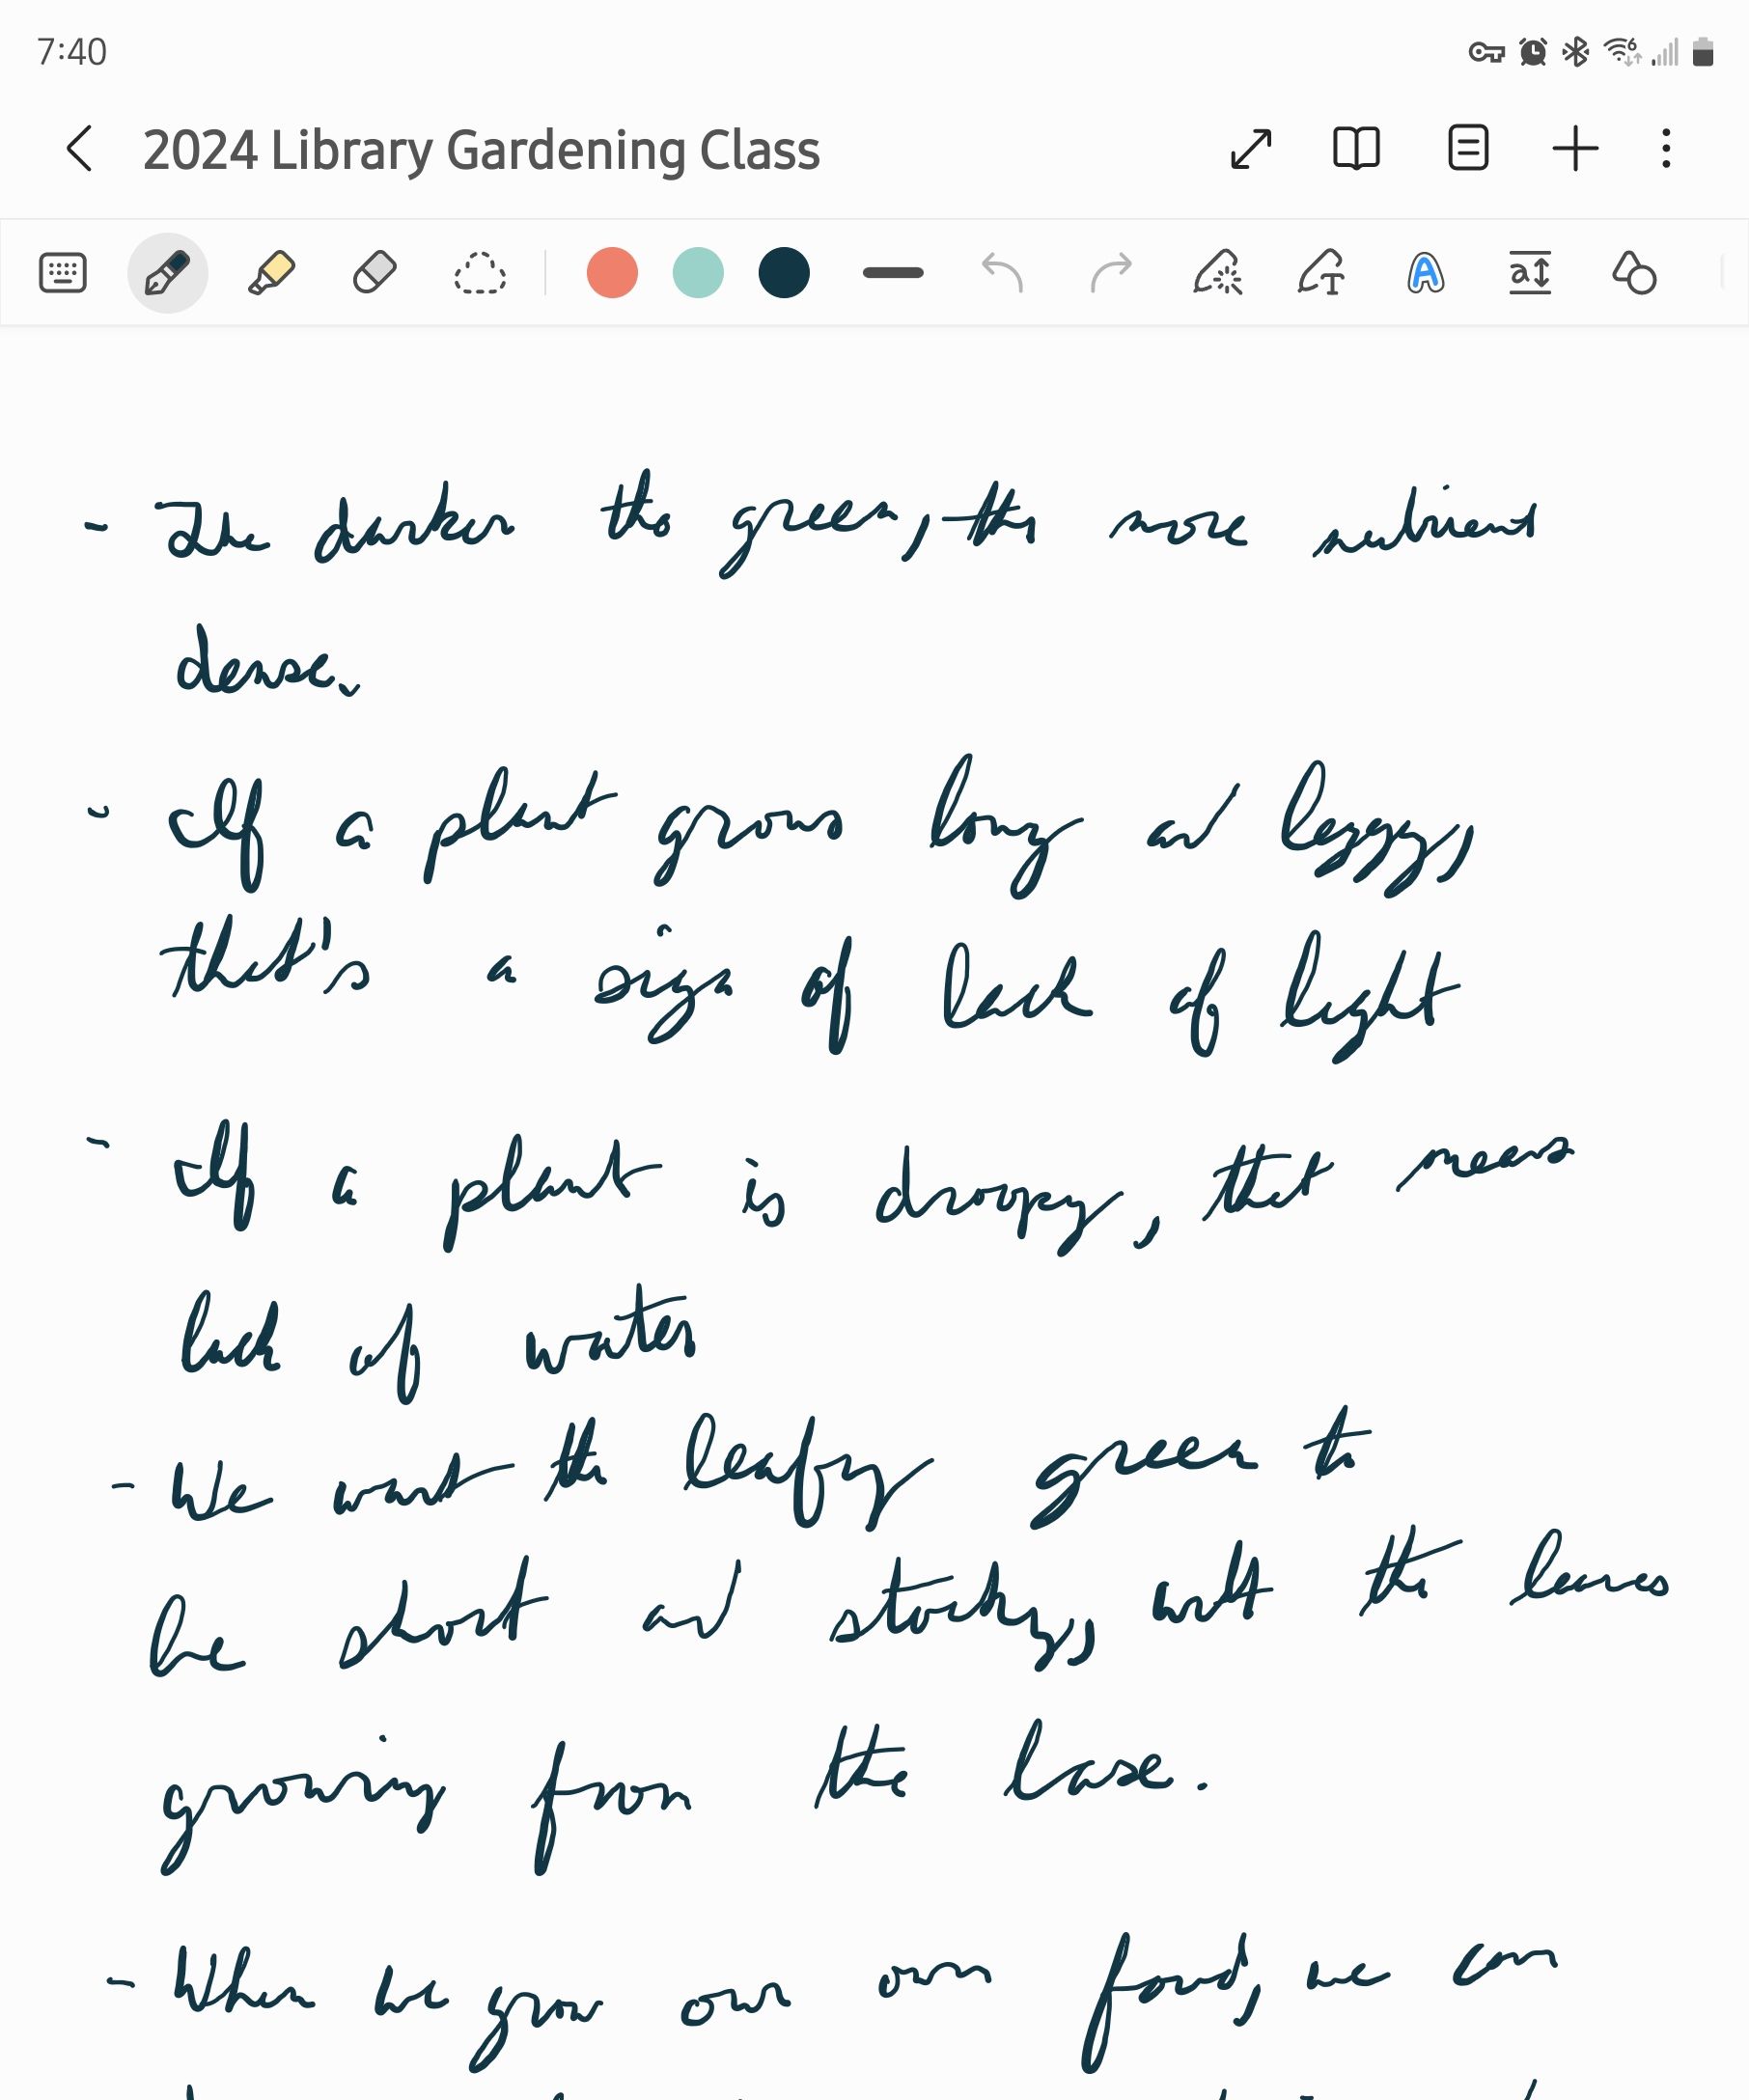 7:40
2024 Library Gardening Class
- The darker the green, the more nutrient
dense.
- If a plant grows long and leggy,
that's a sign of lack of light
- If a plant is droopy, that means
lack of water
- We want the leafy green to
be short and stocky, with the leaves
growing from the base.
- When we grow our own food, we can